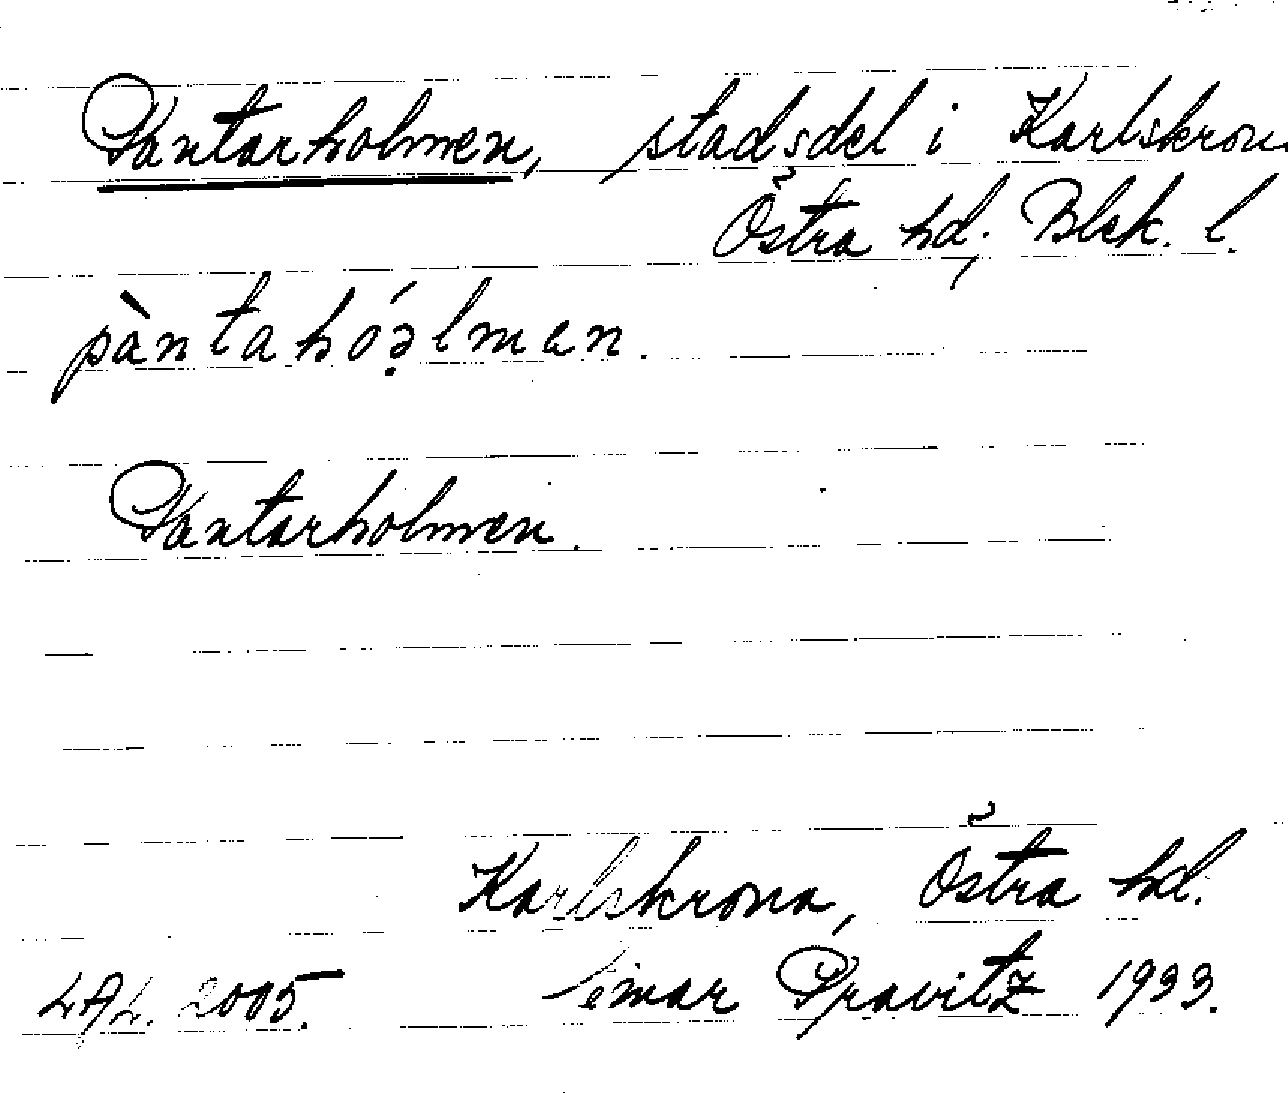 Pantarholmen, stadsdel i Karlskrona
Östra hd, Blek. l.
pàntahóəlmen.
Pantarholmen.
Karlskrona, Östra hd.
LAL. 2005. Einar Pravitz 1933.